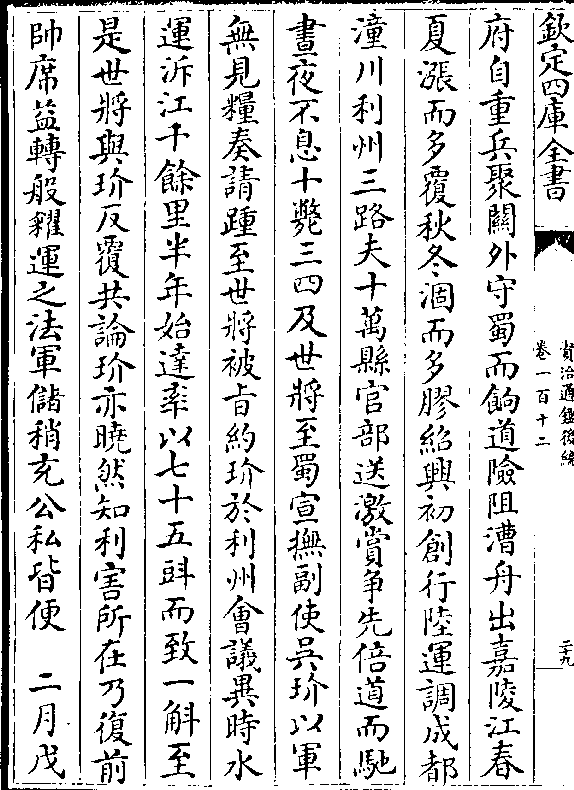 欽定四庫全書
資治通鑑後編
卷一百十二
二十九
府自重兵聚關外守蜀而餉道險阻漕舟出嘉陵江春
夏漲而多覆秋冬涸而多膠紹興初創行陸運調成都
潼川利州三路夫十萬縣官部送激賞争先倍道而馳
晝夜不息十斃三四及世將至蜀宣撫副使吳玠以軍
無見糧奏請踵至世將被㫖約玠於利州會議異時水
運泝江千餘里半年始達率以七十五㪷而致一斛至
是世將與玠反覆共論玠亦曉然知利害所在乃復前
帥席益轉般糴運之法軍儲稍充公私皆便　二月戊